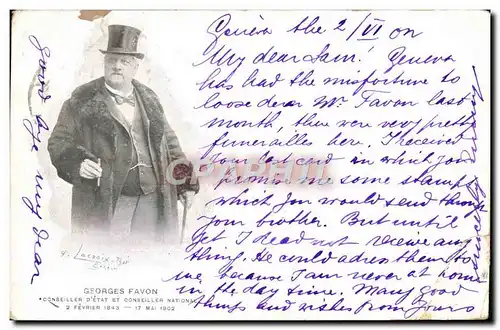 Genèva the 2/VI 02
My dear Sam! Geneva
has had the misfortune to
loose dear Mr. Favon last
month, there were very pretty
funerailles here. I received
your last card in which you
promise me some stamps
which you would send through
your brother. But until
yet I dead not receive any
thing. He could adress them to
me because I am never at home
in the day time. Many good
things and wishes from yours
Good bye my dear
F. Lacroix
GEORGES FAVON
CONSEILLER D'ÉTAT ET CONSEILLER NATIONAL
2 FÉVRIER 1843 — 17 MAI 1902
CPArama